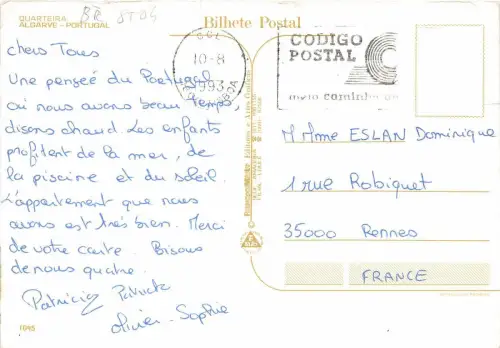 QUARTEIRA
ALGARVE - PORTUGAL
BR 8T04
Bilhete Postal
chers Tous
Une pensée du Portugal
où nous avons beau temps,
disons chaud. Les enfants
profitent de la mer, de
la piscine et du soleil.
L'appartement que nous
avons est très bien. Merci
de votre carte. Bisous
de nous quatre.
Patricia Patrick
Olivier - Sophie
1045
10-8
1993
CODIGO
POSTAL
meio caminho
M Mme ESLAN Dominique
1 rue Robiquet
35000 Rennes
FRANCE